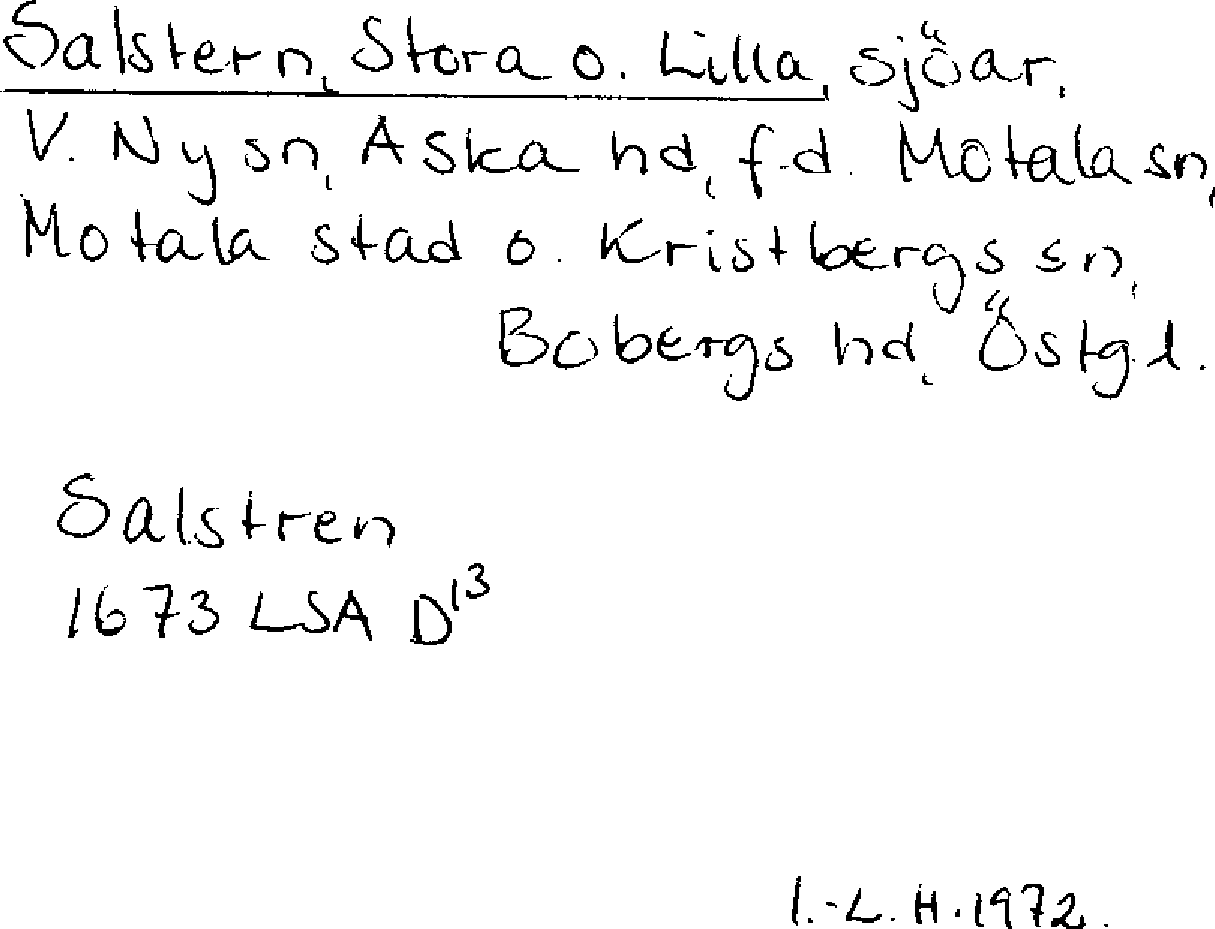 Salstern, Stora o. Lilla, sjöar,
V. Ny sn, Aska hd, f.d. Motala sn,
Motala stad o. Kristbergs sn,
Bobergs hd, Östgl.
Salstren
1673 LSA D¹³
I.-L. H. 1972.